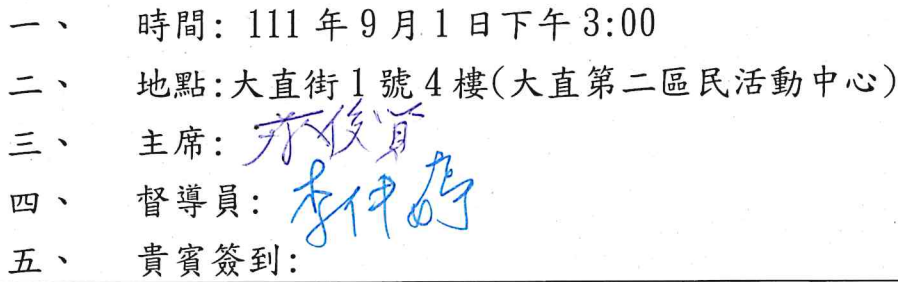 一、 時間: 111年9月1日下午3:00
二、 地點:大直街1號4樓(大直第二區民活動中心)
三、 主席: 俊賢
四、 督導員: 李仲婷
五、 貴賓簽到: